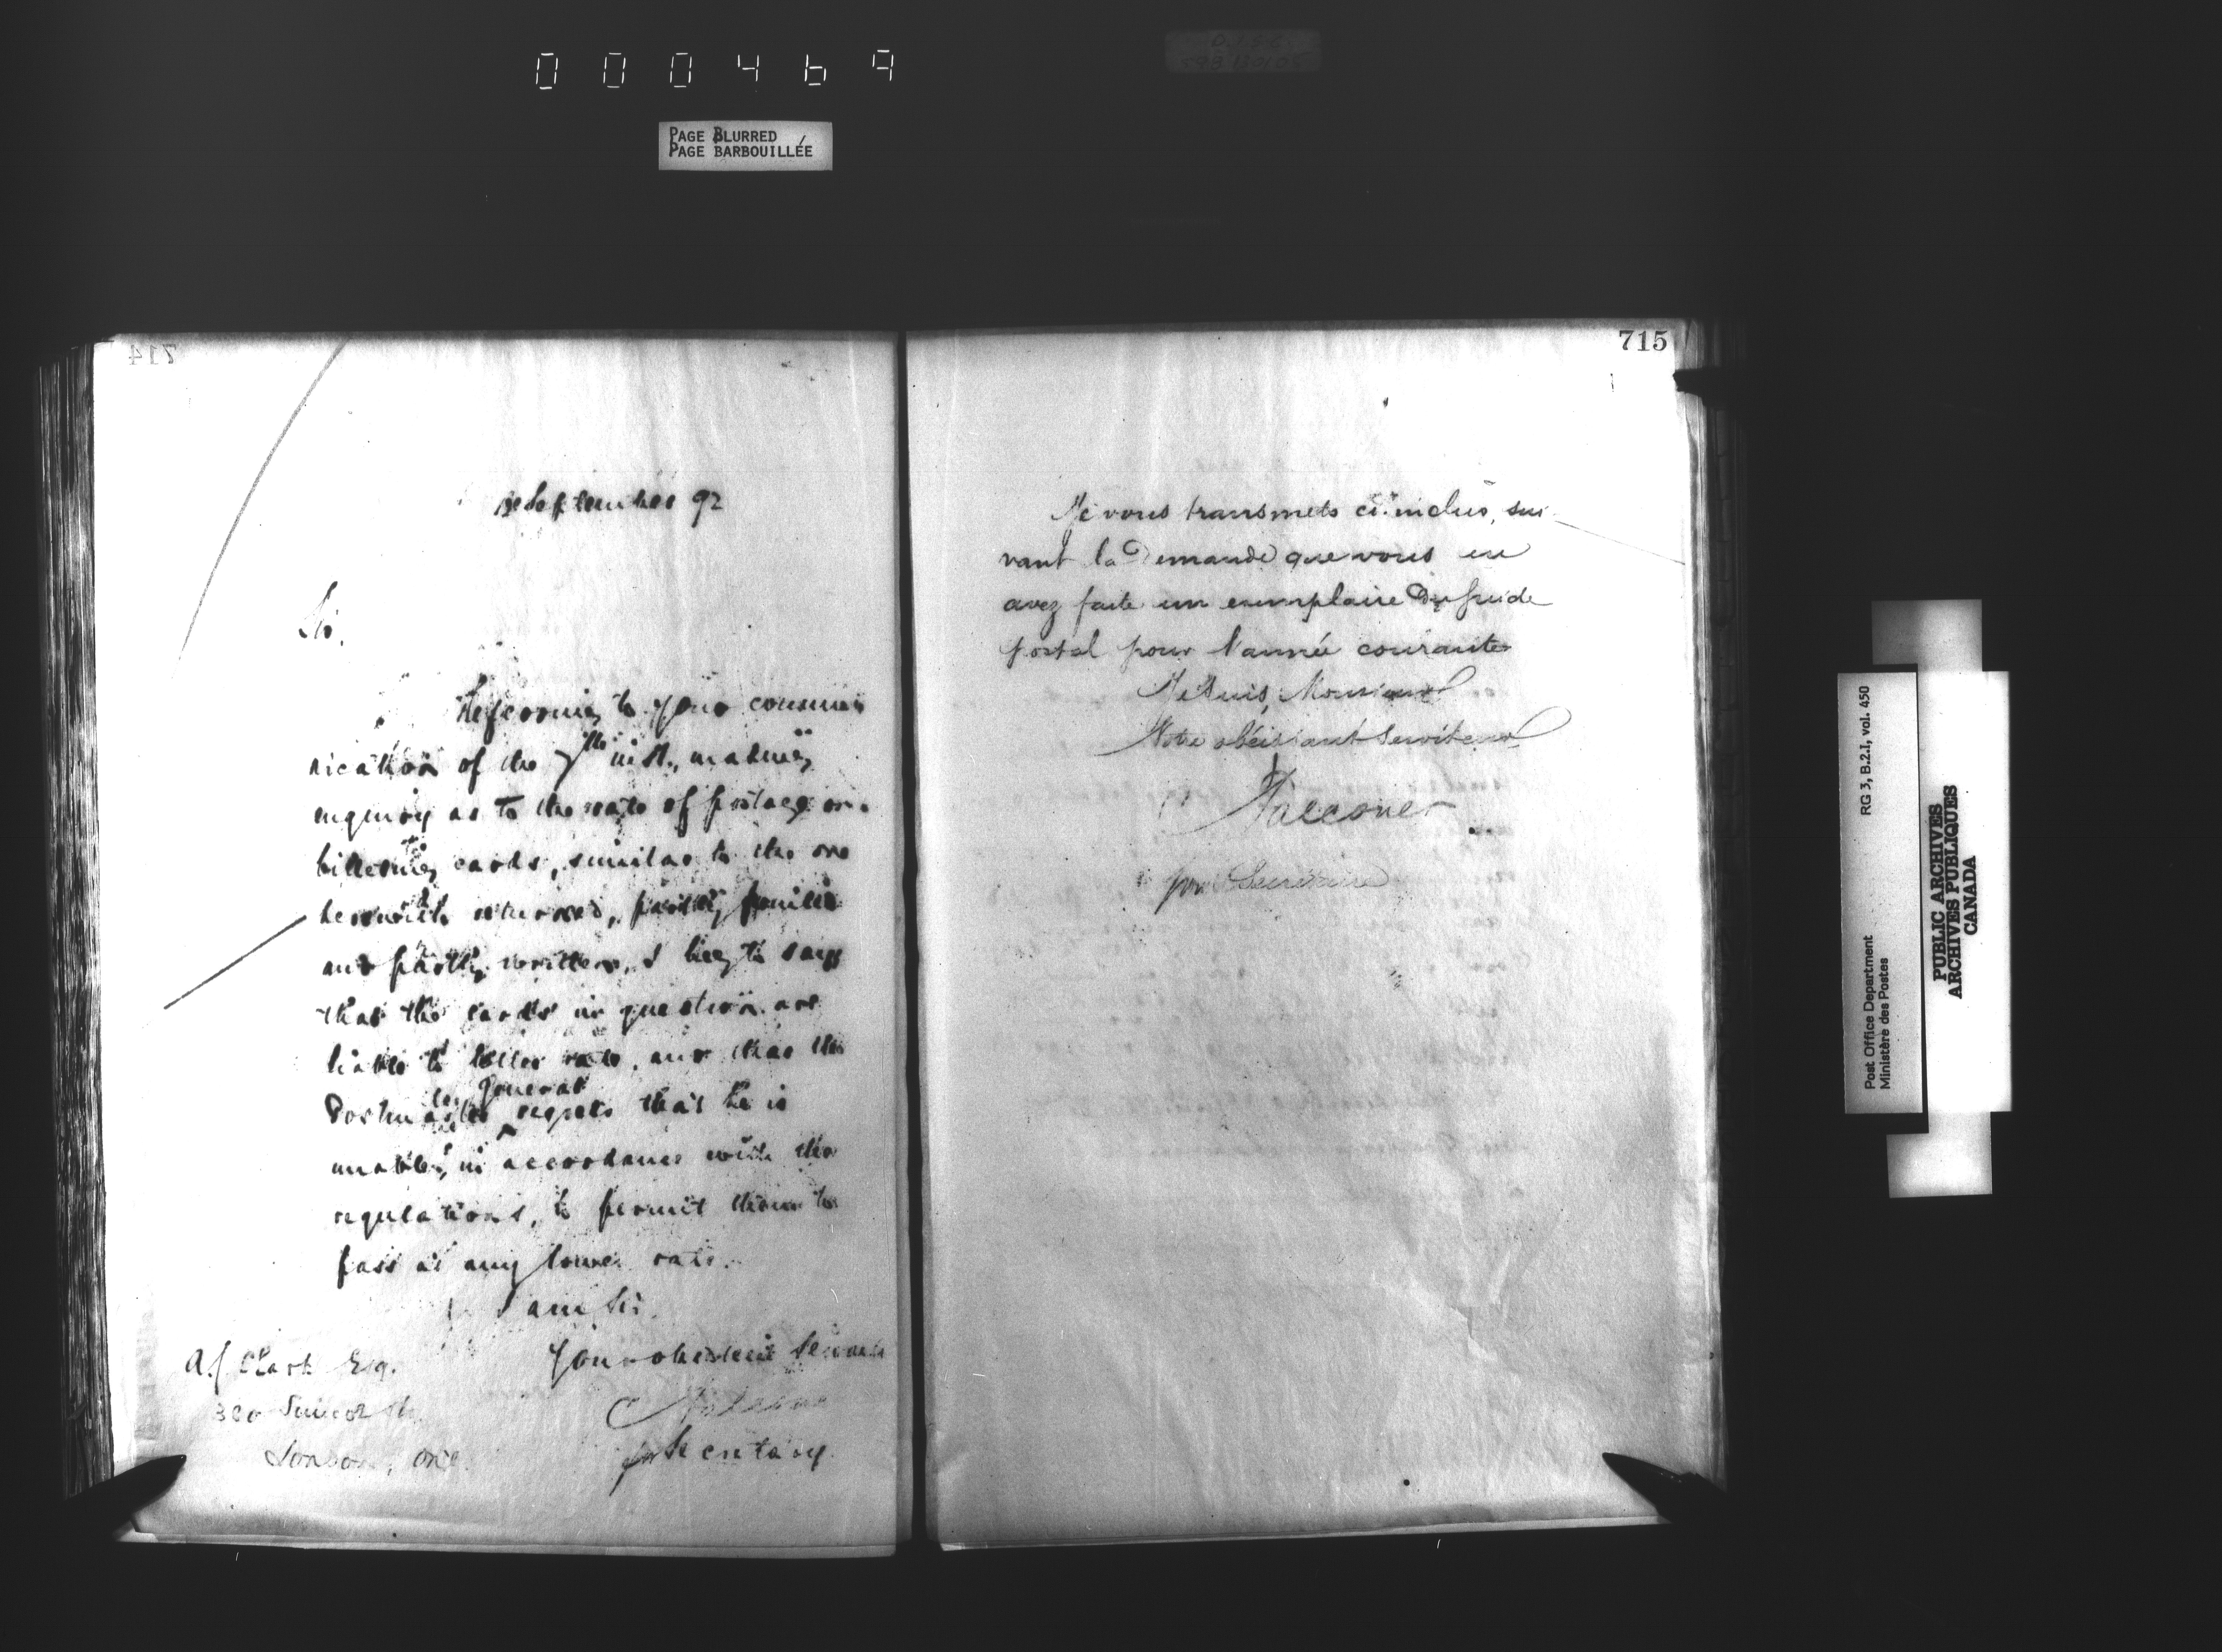 000469
PAGE BLURRED
PAGE BARBOUILLÉE
714
September 92
Sir.
Referring to your commu
nication of the 7th inst., making
enquiry as to the rate of postage on
cards, similar to the one
herewith returned, partly printed
and partly written, I beg to say
that the cards in question are
liable to letter rate, and that the
Postmaster General regrets that he is
unable, in accordance with the
regulations, to permit them to
pass at any lower rate.
I am Sir.
Your obedient Servant
for Secretary.
A. J. Clark Esq.
London, Ont.
715
Je vous transmets ci-inclus, sui
vant la Demande que vous en
avez faite un exemplaire Du Guide
postal pour l'année courante
Je suis, Monsieur
Votre obéissant Serviteur
Falconer
pour Secrétaire
Post Office Department
Ministère des Postes
RG 3, B.2.I, vol. 450
PUBLIC ARCHIVES
ARCHIVES PUBLIQUES
CANADA